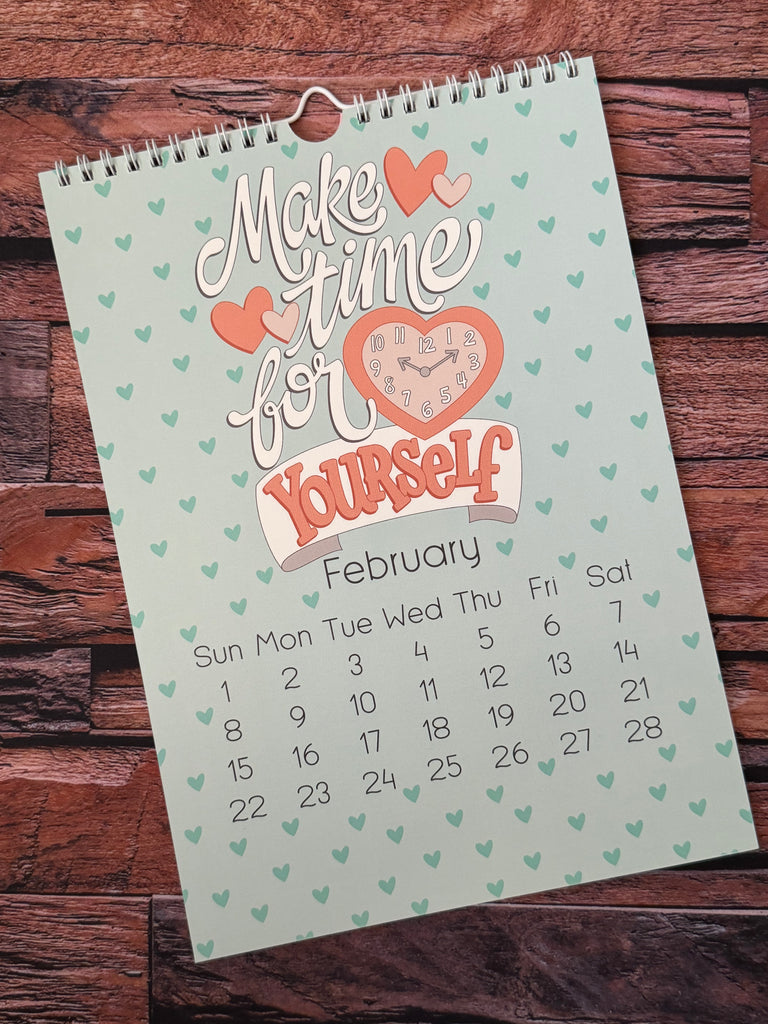 Make
time
for
10 11 12 1 2
9 3
8 4
7 6 5
YOURSELF
February
Sun Mon Tue Wed Thu Fri Sat
1 2 3 4 5 6 7
8 9 10 11 12 13 14
15 16 17 18 19 20 21
22 23 24 25 26 27 28